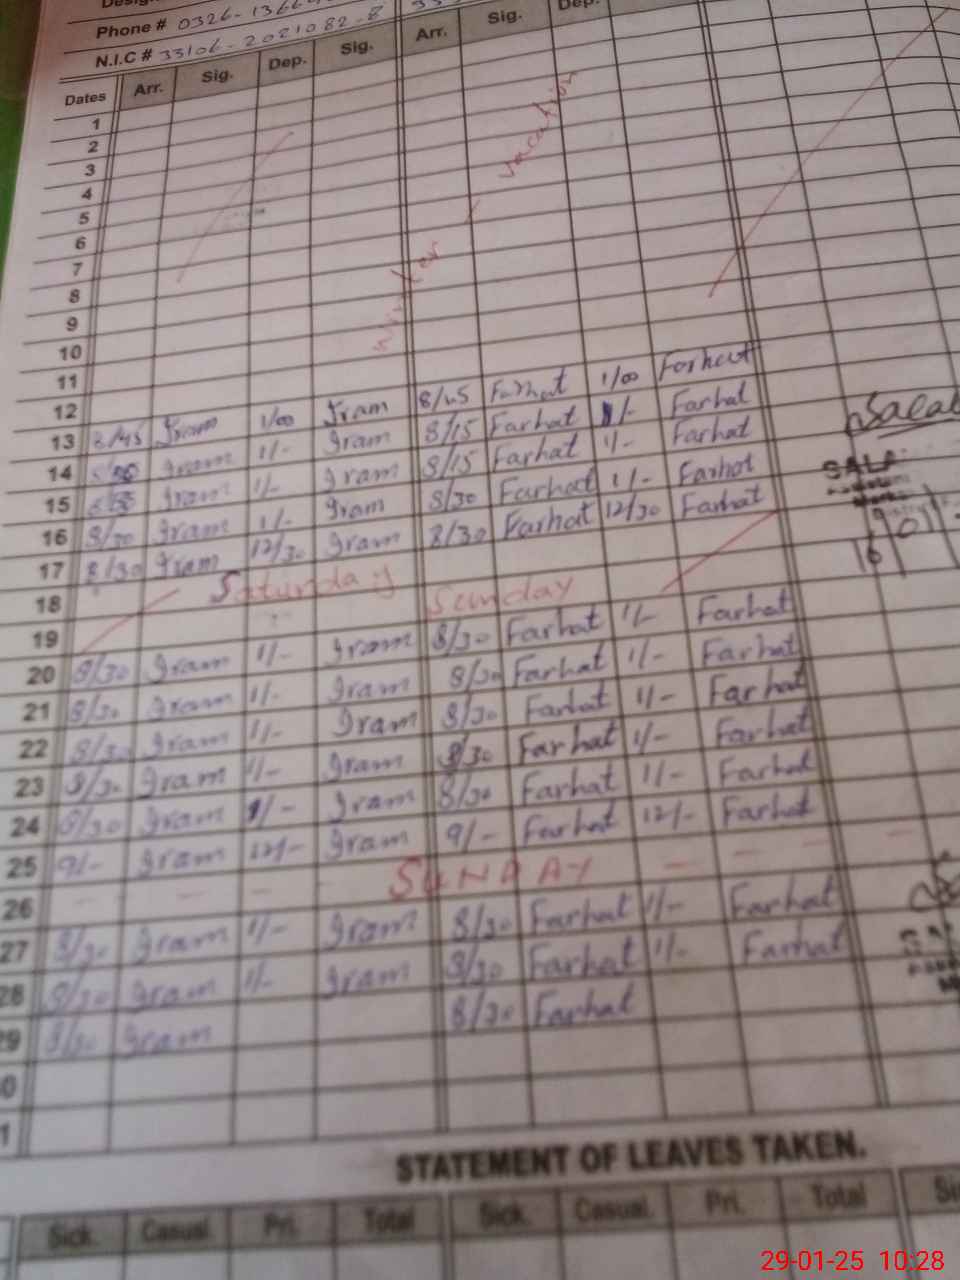 Phone # 0326-1366
N.I.C # 33106-2021082-8
Dates Arr. Sig. Dep. Sig. Arr. Sig. Dep.
1
2
3
4
5
6
7
8
9
10
winter - vacation
11
12
13 8/45 Iram 1/00 Iram 8/45 Farhat 1/00 Farhat
14 Iram 1/- Iram 8/15 Farhat 1/- Farhat
15 Iram 1/- Iram 8/15 Farhat 1/- Farhat
16 8/30 Iram 1/- Iram 8/30 Farhat 1/- Farhat
17 8/30 Iram 12/30 Iram 8/30 Farhat 12/30 Farhat
18 Saturday
19 Sunday
20 8/30 Iram 1/- Iram 8/30 Farhat 1/- Farhat
21 8/30 Iram 1/- Iram 8/30 Farhat 1/- Farhat
22 8/30 Iram 1/- Iram 8/30 Farhat 1/- Farhat
23 8/30 Iram 1/- Iram 8/30 Farhat 1/- Farhat
24 8/30 Iram 1/- Iram 8/30 Farhat 1/- Farhat
25 9/- Iram 12/- Iram 9/- Farhat 12/- Farhat
26 SUNDAY
27 8/30 Iram 1/- Iram 8/30 Farhat 1/- Farhat
28 8/30 Iram 1/- Iram 8/30 Farhat 1/- Farhat
29 8/30 Iram 8/30 Farhat
0
1
STATEMENT OF LEAVES TAKEN.
Sick. Casual. Pri. Total Sick. Casual. Pri. Total
29-01-25 10:28